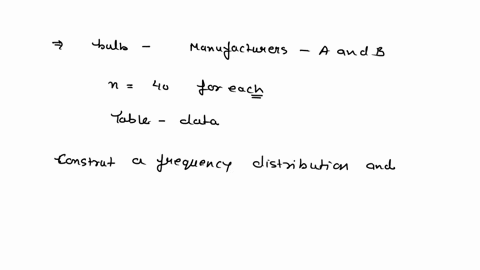 ⇒ bulb - Manufacturers - A and B
n = 40 for each
Table - data
Construt a frequency distribution and